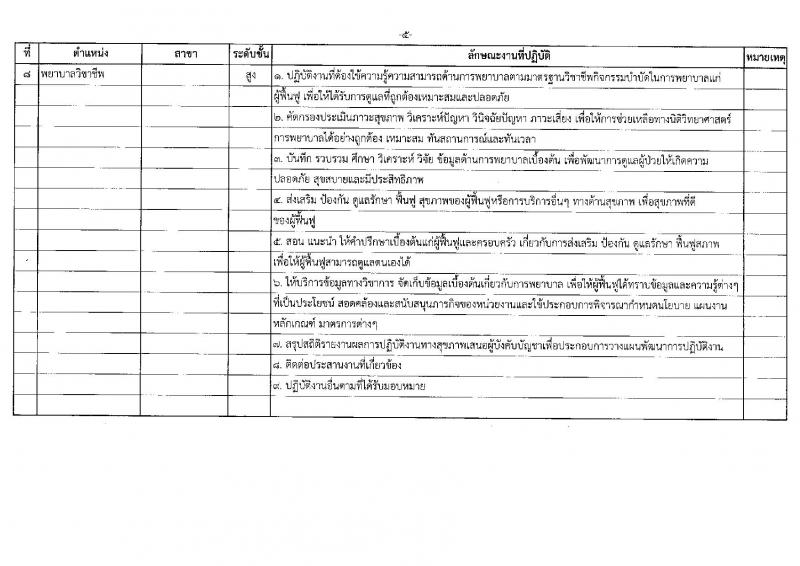 -๕-
ที่ ตำแหน่ง สาขา ระดับชั้น ลักษณะงานที่ปฏิบัติ หมายเหตุ
๘ พยาบาลวิชาชีพ สูง ๑. ปฏิบัติงานที่ต้องใช้ความรู้ความสามารถด้านการพยาบาลตามมาตรฐานวิชาชีพกิจกรรมบำบัดในการพยาบาลแก่
ผู้ฟื้นฟู เพื่อให้ได้รับการดูแลที่ถูกต้องเหมาะสมและปลอดภัย
๒. คัดกรองประเมินภาวะสุขภาพ วิเคราะห์ปัญหา วินิจฉัยปัญหา ภาวะเสี่ยง เพื่อให้การช่วยเหลือทางนิติวิทยาศาสตร์
การพยาบาลได้อย่างถูกต้อง เหมาะสม ทันสถานการณ์และทันเวลา
๓. บันทึก รวบรวม ศึกษา วิเคราะห์ วิจัย ข้อมูลด้านการพยาบาลเบื้องต้น เพื่อพัฒนาการดูแลผู้ป่วยให้เกิดความ
ปลอดภัย สุขสบายและมีประสิทธิภาพ
๔. ส่งเสริม ป้องกัน ดูแลรักษา ฟื้นฟู สุขภาพของผู้ฟื้นฟูหรือการบริการอื่นๆ ทางด้านสุขภาพ เพื่อสุขภาพที่ดี
ของผู้ฟื้นฟู
๕. สอน แนะนำ ให้คำปรึกษาเบื้องต้นแก่ผู้ฟื้นฟูและครอบครัว เกี่ยวกับการส่งเสริม ป้องกัน ดูแลรักษา ฟื้นฟูสภาพ
เพื่อให้ผู้ฟื้นฟูสามารถดูแลตนเองได้
๖. ให้บริการข้อมูลทางวิชาการ จัดเก็บข้อมูลเบื้องต้นเกี่ยวกับการพยาบาล เพื่อให้ผู้ฟื้นฟูได้ทราบข้อมูลและความรู้ต่างๆ
ที่เป็นประโยชน์ สอดคล้องและสนับสนุนภารกิจของหน่วยงานและใช้ประกอบการพิจารณากำหนดนโยบาย แผนงาน
หลักเกณฑ์ มาตรการต่างๆ
๗. สรุปสถิติรายงานผลการปฏิบัติงานทางสุขภาพเสนอผู้บังคับบัญชาเพื่อประกอบการวางแผนพัฒนาการปฏิบัติงาน
๘. ติดต่อประสานงานที่เกี่ยวข้อง
๙. ปฏิบัติงานอื่นตามที่ได้รับมอบหมาย